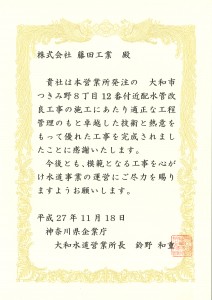 株式会社 藤田工業 殿
貴社は本営業所発注の 大和市
つきみ野８丁目１２番付近配水管改
良工事の施工にあたり適正な工程
管理のもと卓越した技術と熱意を
もって優れた工事を完成されまし
たことに感謝いたします。
今後とも、模範となる工事を心が
け水道事業の運営にご尽力を賜り
ますようお願いします。
平成２７年１１月１８日
神奈川県企業庁
大和水道営業所長 鈴野 和重